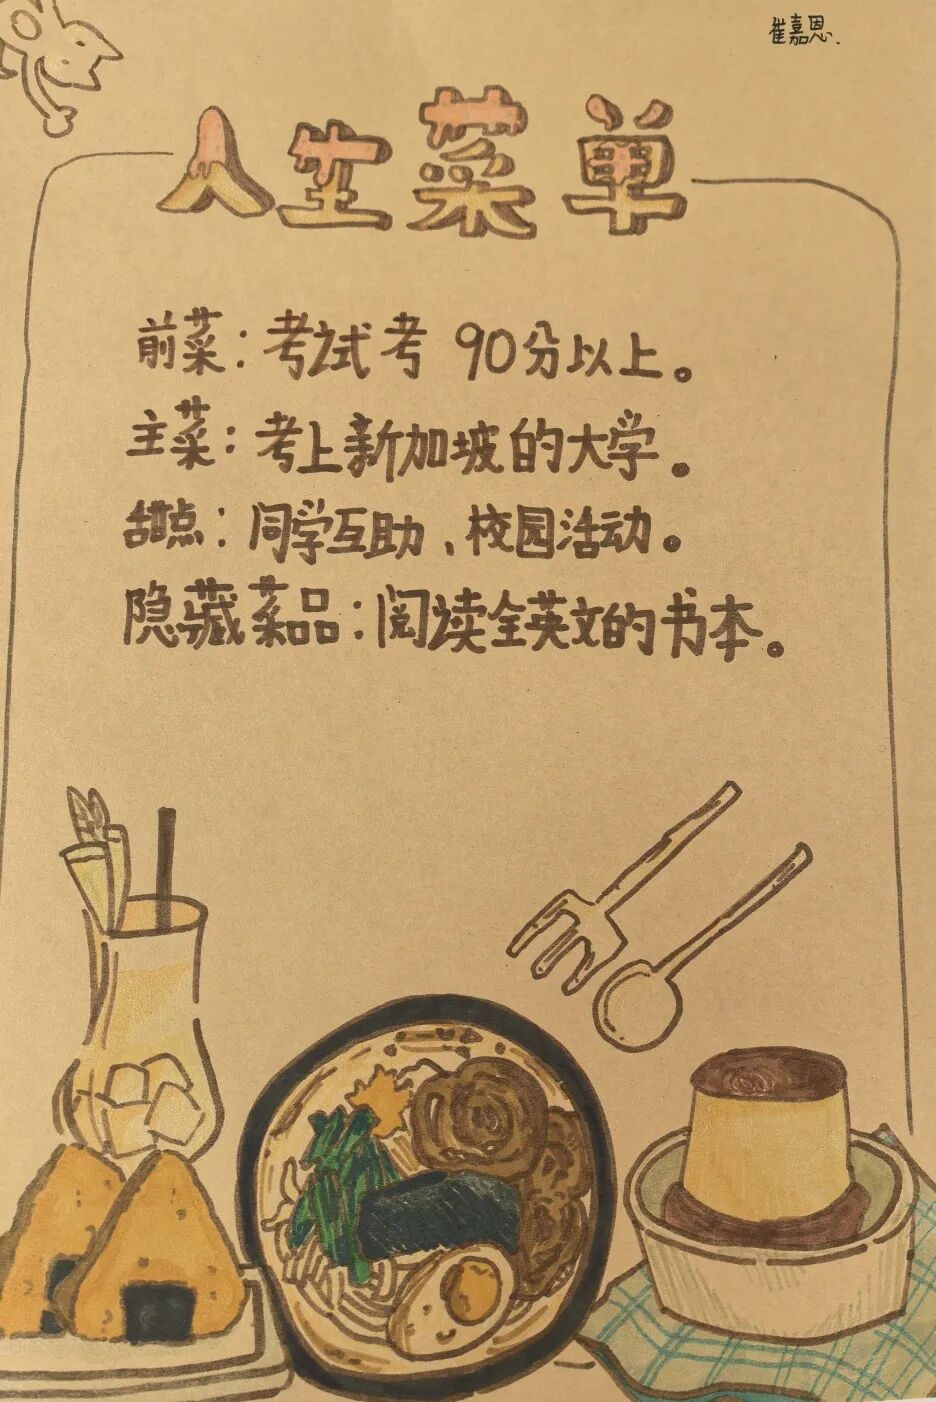 崔嘉恩.
人生菜单
前菜：考试考 90分以上。
主菜：考上新加坡的大学。
甜点：同学互助、校园活动。
隐藏菜品：阅读全英文的书本。